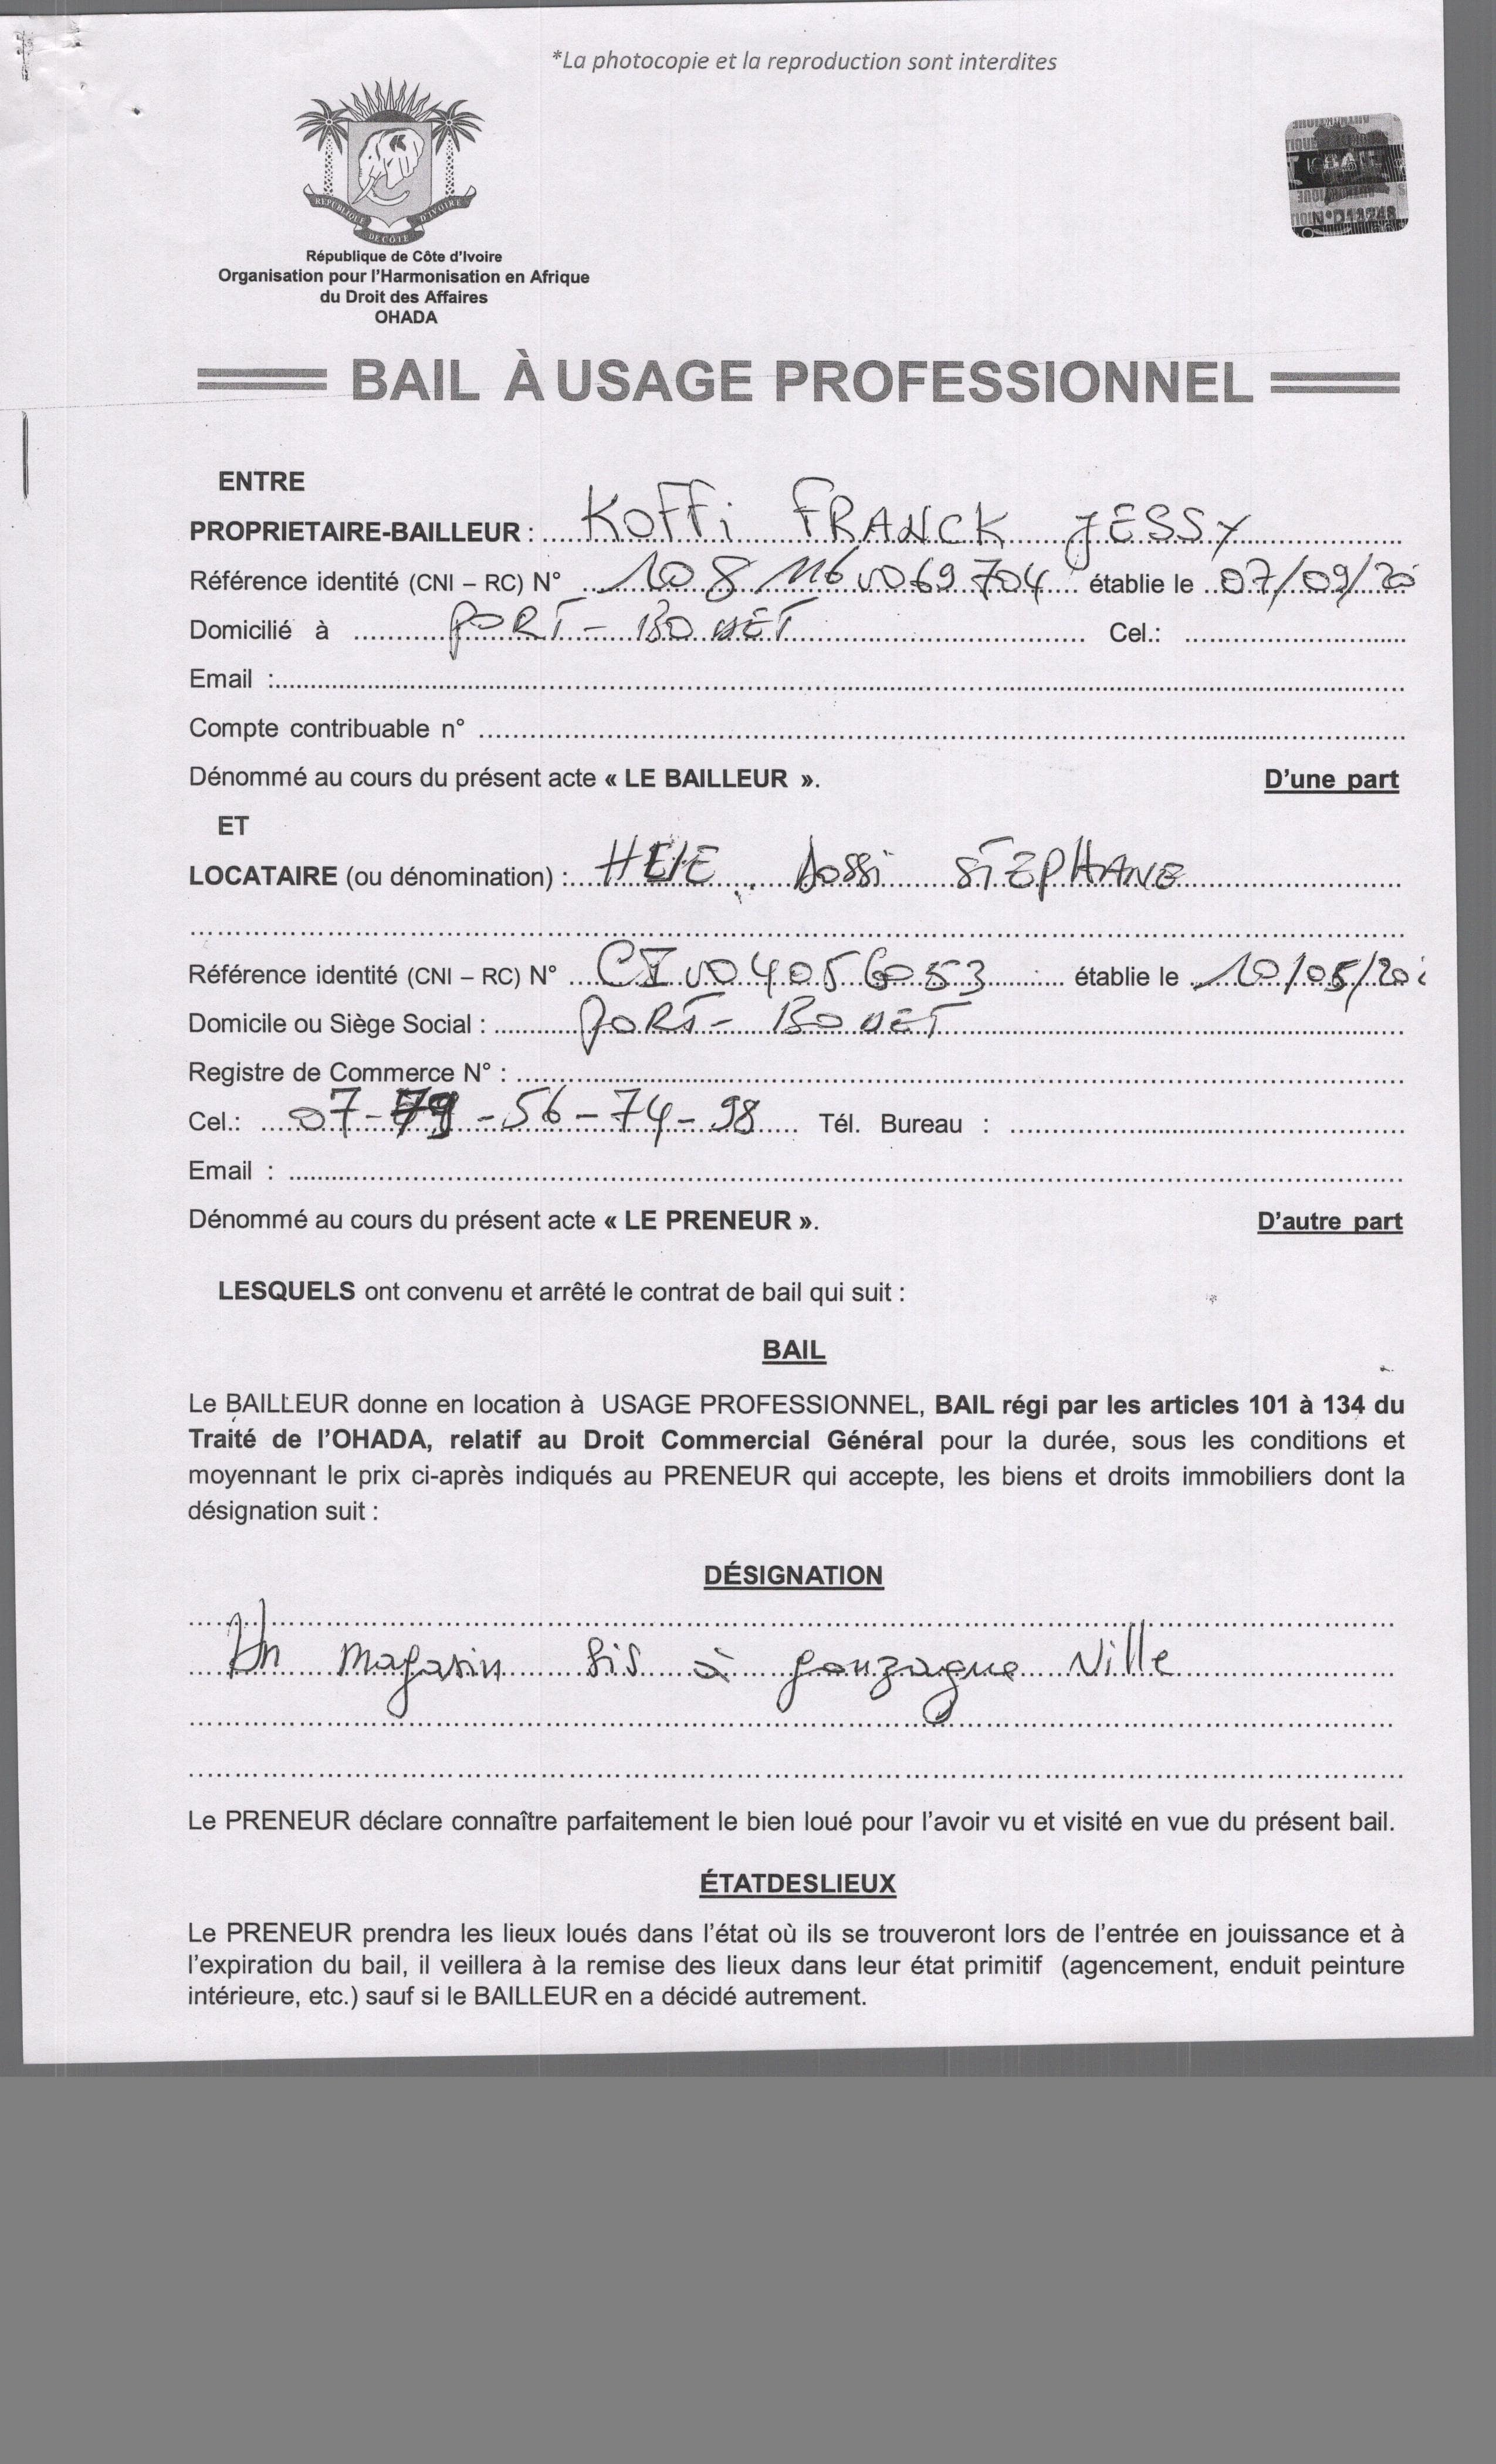 *La photocopie et la reproduction sont interdites
REPUBLIQUE DE CÔTE D'IVOIRE
N°D13248
République de Côte d'Ivoire
Organisation pour l'Harmonisation en Afrique
du Droit des Affaires
OHADA
BAIL À USAGE PROFESSIONNEL
ENTRE
PROPRIETAIRE-BAILLEUR : KOFFi FRANCK JESSY
Référence identité (CNI – RC) N° 108 116 0069 704 établie le 07/09/20
Domicilié à PORT - BOUET Cel.:
Email :
Compte contribuable n°
Dénommé au cours du présent acte « LE BAILLEUR ». D'une part
ET
LOCATAIRE (ou dénomination) : STEPHANE
Référence identité (CNI – RC) N° CI004056053 établie le 10/05/20
Domicile ou Siège Social : PORT - BOUET
Registre de Commerce N° :
Cel.: 07-79-56-74-98 Tél. Bureau :
Email :
Dénommé au cours du présent acte « LE PRENEUR ». D'autre part
LESQUELS ont convenu et arrêté le contrat de bail qui suit :
BAIL
Le BAILLEUR donne en location à USAGE PROFESSIONNEL, BAIL régi par les articles 101 à 134 du
Traité de l'OHADA, relatif au Droit Commercial Général pour la durée, sous les conditions et
moyennant le prix ci-après indiqués au PRENEUR qui accepte, les biens et droits immobiliers dont la
désignation suit :
DÉSIGNATION
Un magasin sis à gonzague Ville
Le PRENEUR déclare connaître parfaitement le bien loué pour l'avoir vu et visité en vue du présent bail.
ÉTATDESLIEUX
Le PRENEUR prendra les lieux loués dans l'état où ils se trouveront lors de l'entrée en jouissance et à
l'expiration du bail, il veillera à la remise des lieux dans leur état primitif (agencement, enduit peinture
intérieure, etc.) sauf si le BAILLEUR en a décidé autrement.